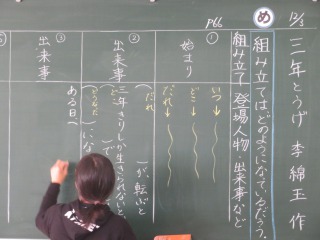 12/3
三年とうげ 李錦玉 作
め
組み立ては、どのようになっているだろう。
p66
組み立て 登場人物・出来事など
①
始まり
いつ→
どこ→
だれ→
②
出来事
だれ
が、転んで
三年きりしか生きられないと
どこ
で
になる
③
出来事
ある日